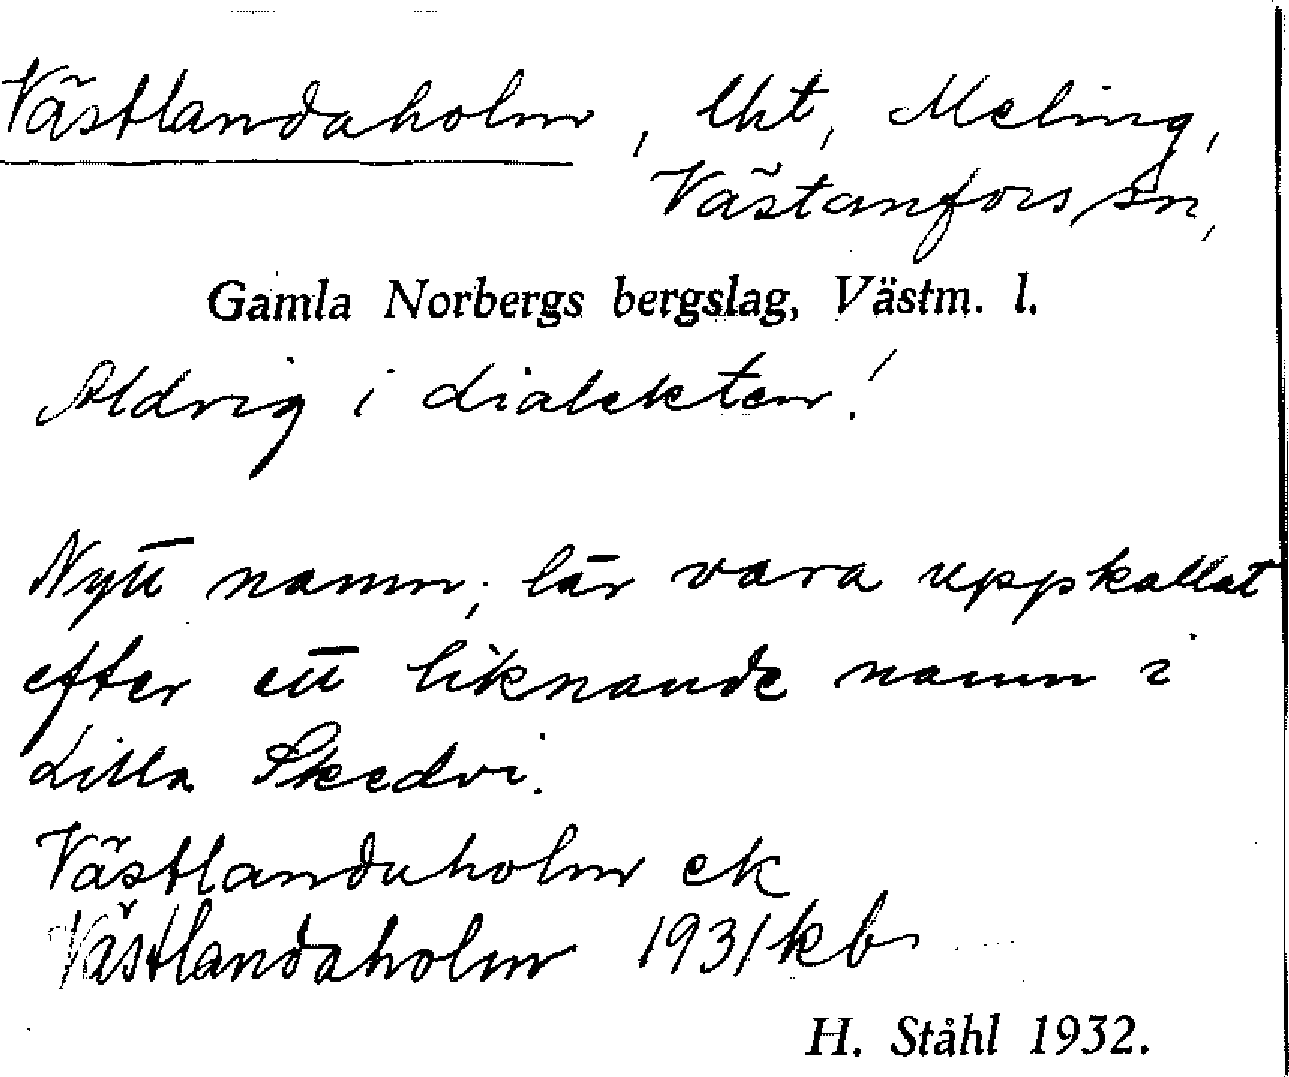 Västlandaholm, lht, Meling,
Västanfors sn,
Gamla Norbergs bergslag, Västm. l.
Aldrig i dialekten!
Nytt namn; lär vara uppkallat
efter ett liknande namn i
Lilla Skedvi.
Västlandaholm ek
Västlandaholm 1931 kb
H. Ståhl 1932.